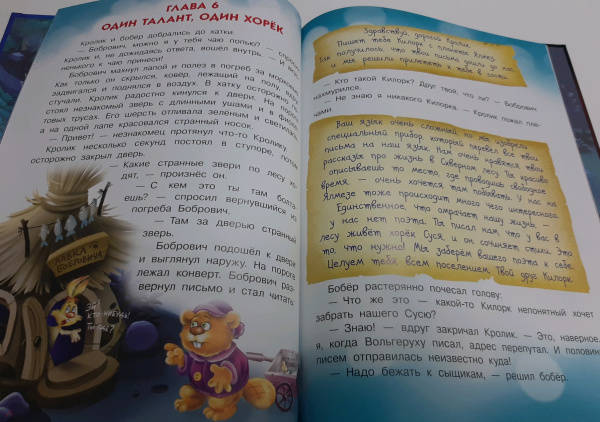 ГЛАВА 6
ОДИН ТАЛАНТ, ОДИН ХОРЁК
Кролик и бобёр добрались до хатки.
— Бобрович, можно я у тебя чаю попью? — спросил
Кролик и, не дожидаясь ответа, вошёл внутрь. — И
ненького к чаю принеси!
Бобрович махнул лапой и полез в погреб за морковью.
Как только он скрылся, ковёр, лежащий на полу,
задвигался и поднялся в воздух. В хатку осторожно по-
стучали. Кролик радостно кинулся к двери. На пороге
стоял незнакомый зверь с длинными ушами и в фиоле-
товых трусах. Его шерсть отливала зелёным и светилась,
а на одной лапе красовался странный носок.
— Привет! — незнакомец протянул что-то Кролику.
Кролик несколько секунд постоял в ступоре, потом
осторожно закрыл дверь.
— Какие странные звери по лесу хо-
дят, — произнёс он.
— С кем это ты там болта-
ешь? — спросил вернувшийся из
погреба Бобрович.
— Там за дверью странный
зверь.
Бобрович подошёл к двери
и выглянул наружу. На пороге
лежал конверт. Бобрович раз-
вернул письмо и стал читать.
ЛАВКА
БОБРОВИЧА
ЭЙ!
КТО-НИБУДЬ!
ТЫ ГДЕ?
Здравствуй, дорогой Кролик.
Пишет тебе Килорк с планеты Ялмез.
Так получилось, что твои письма дошли до нас,
и мы решили прилететь к тебе в гости.
— Кто такой Килорк? Друг твой, что ли? — Бобрович
нахмурился.
— Не знаю я никакого Килорка. — Кролик пожал пле-
чами.
Ваш язык очень сложный, но мы изобрели
специальный прибор, который перевёл все твои
письма на наш язык. Нам очень нравятся твои
рассказы про жизнь в Северном лесу. Ты красиво
описываешь то место, где проводишь свободное
время, — очень хочется там побывать. У нас на
Ялмезе тоже происходит много чего интересного.
Единственное, что омрачает нашу жизнь, —
у нас нет поэта. Ты писал нам, что у вас в
лесу живёт хорёк Суся, и он сочиняет стихи. Это
то, что нужно! Мы заберём вашего поэта к себе.
Целуем тебя всем поселением. Твой друг Килорк.
Бобёр растерянно почесал голову:
— Что же это — какой-то Килорк непонятный хочет
забрать нашего Сусю?
— Знаю! — вдруг закричал Кролик. — Это, наверное,
я, когда Вольгеруху писал, адрес перепутал. И половина
писем отправилась неизвестно куда!
— Надо бежать к сыщикам, — решил бобёр.